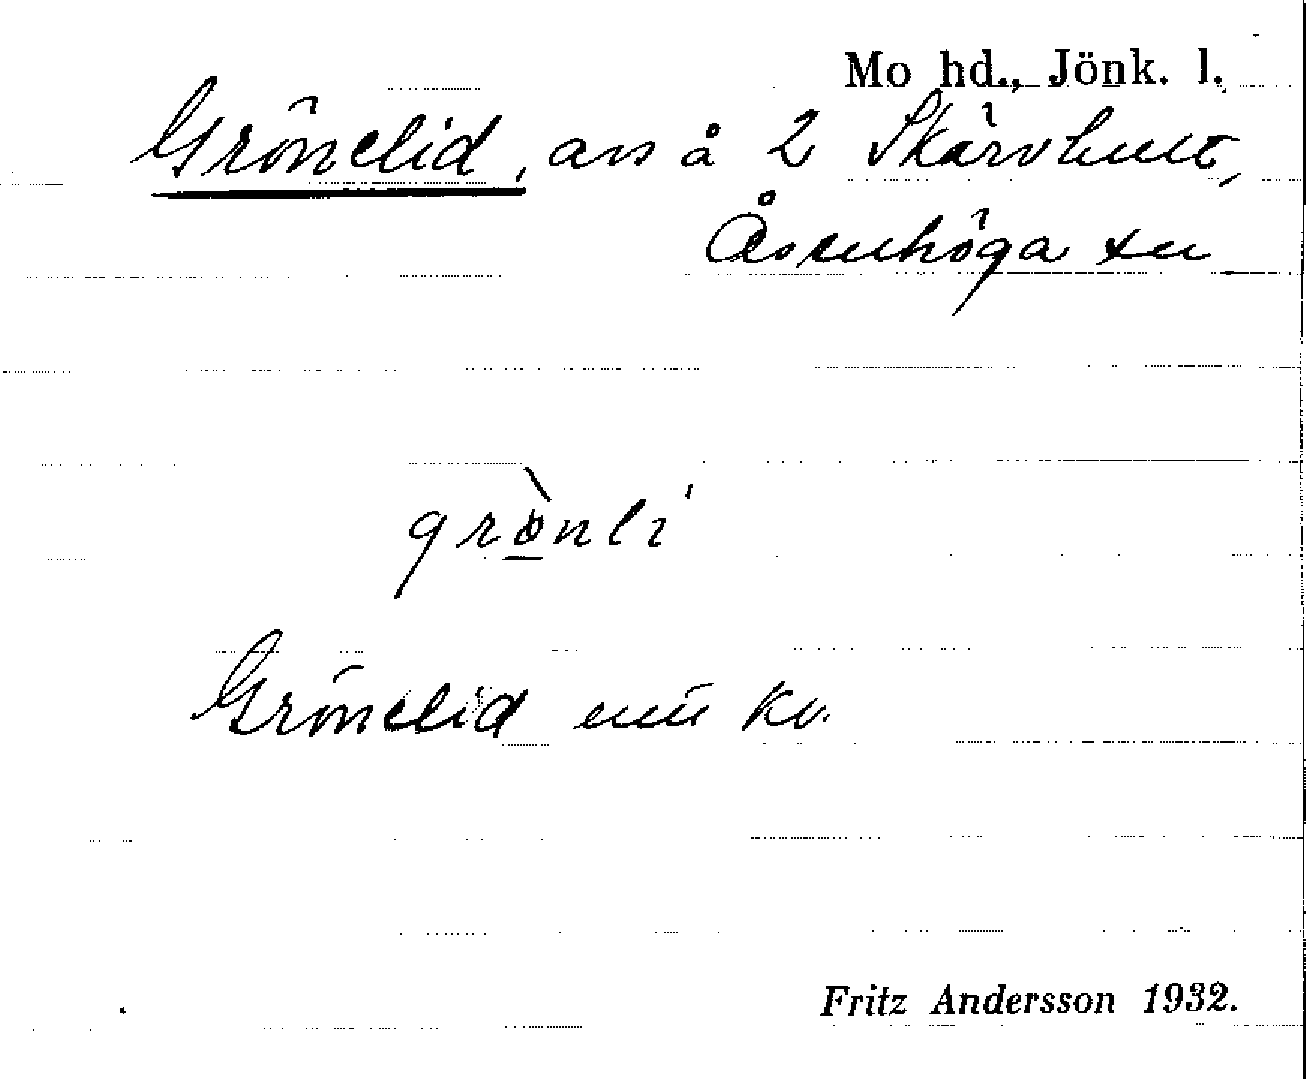 Mo hd., Jönk. l.
Grönelid, avs å 2 Skärvhult,
Åsenhöga sn
grönli
Grönelid enl kv.
Fritz Andersson 1932.